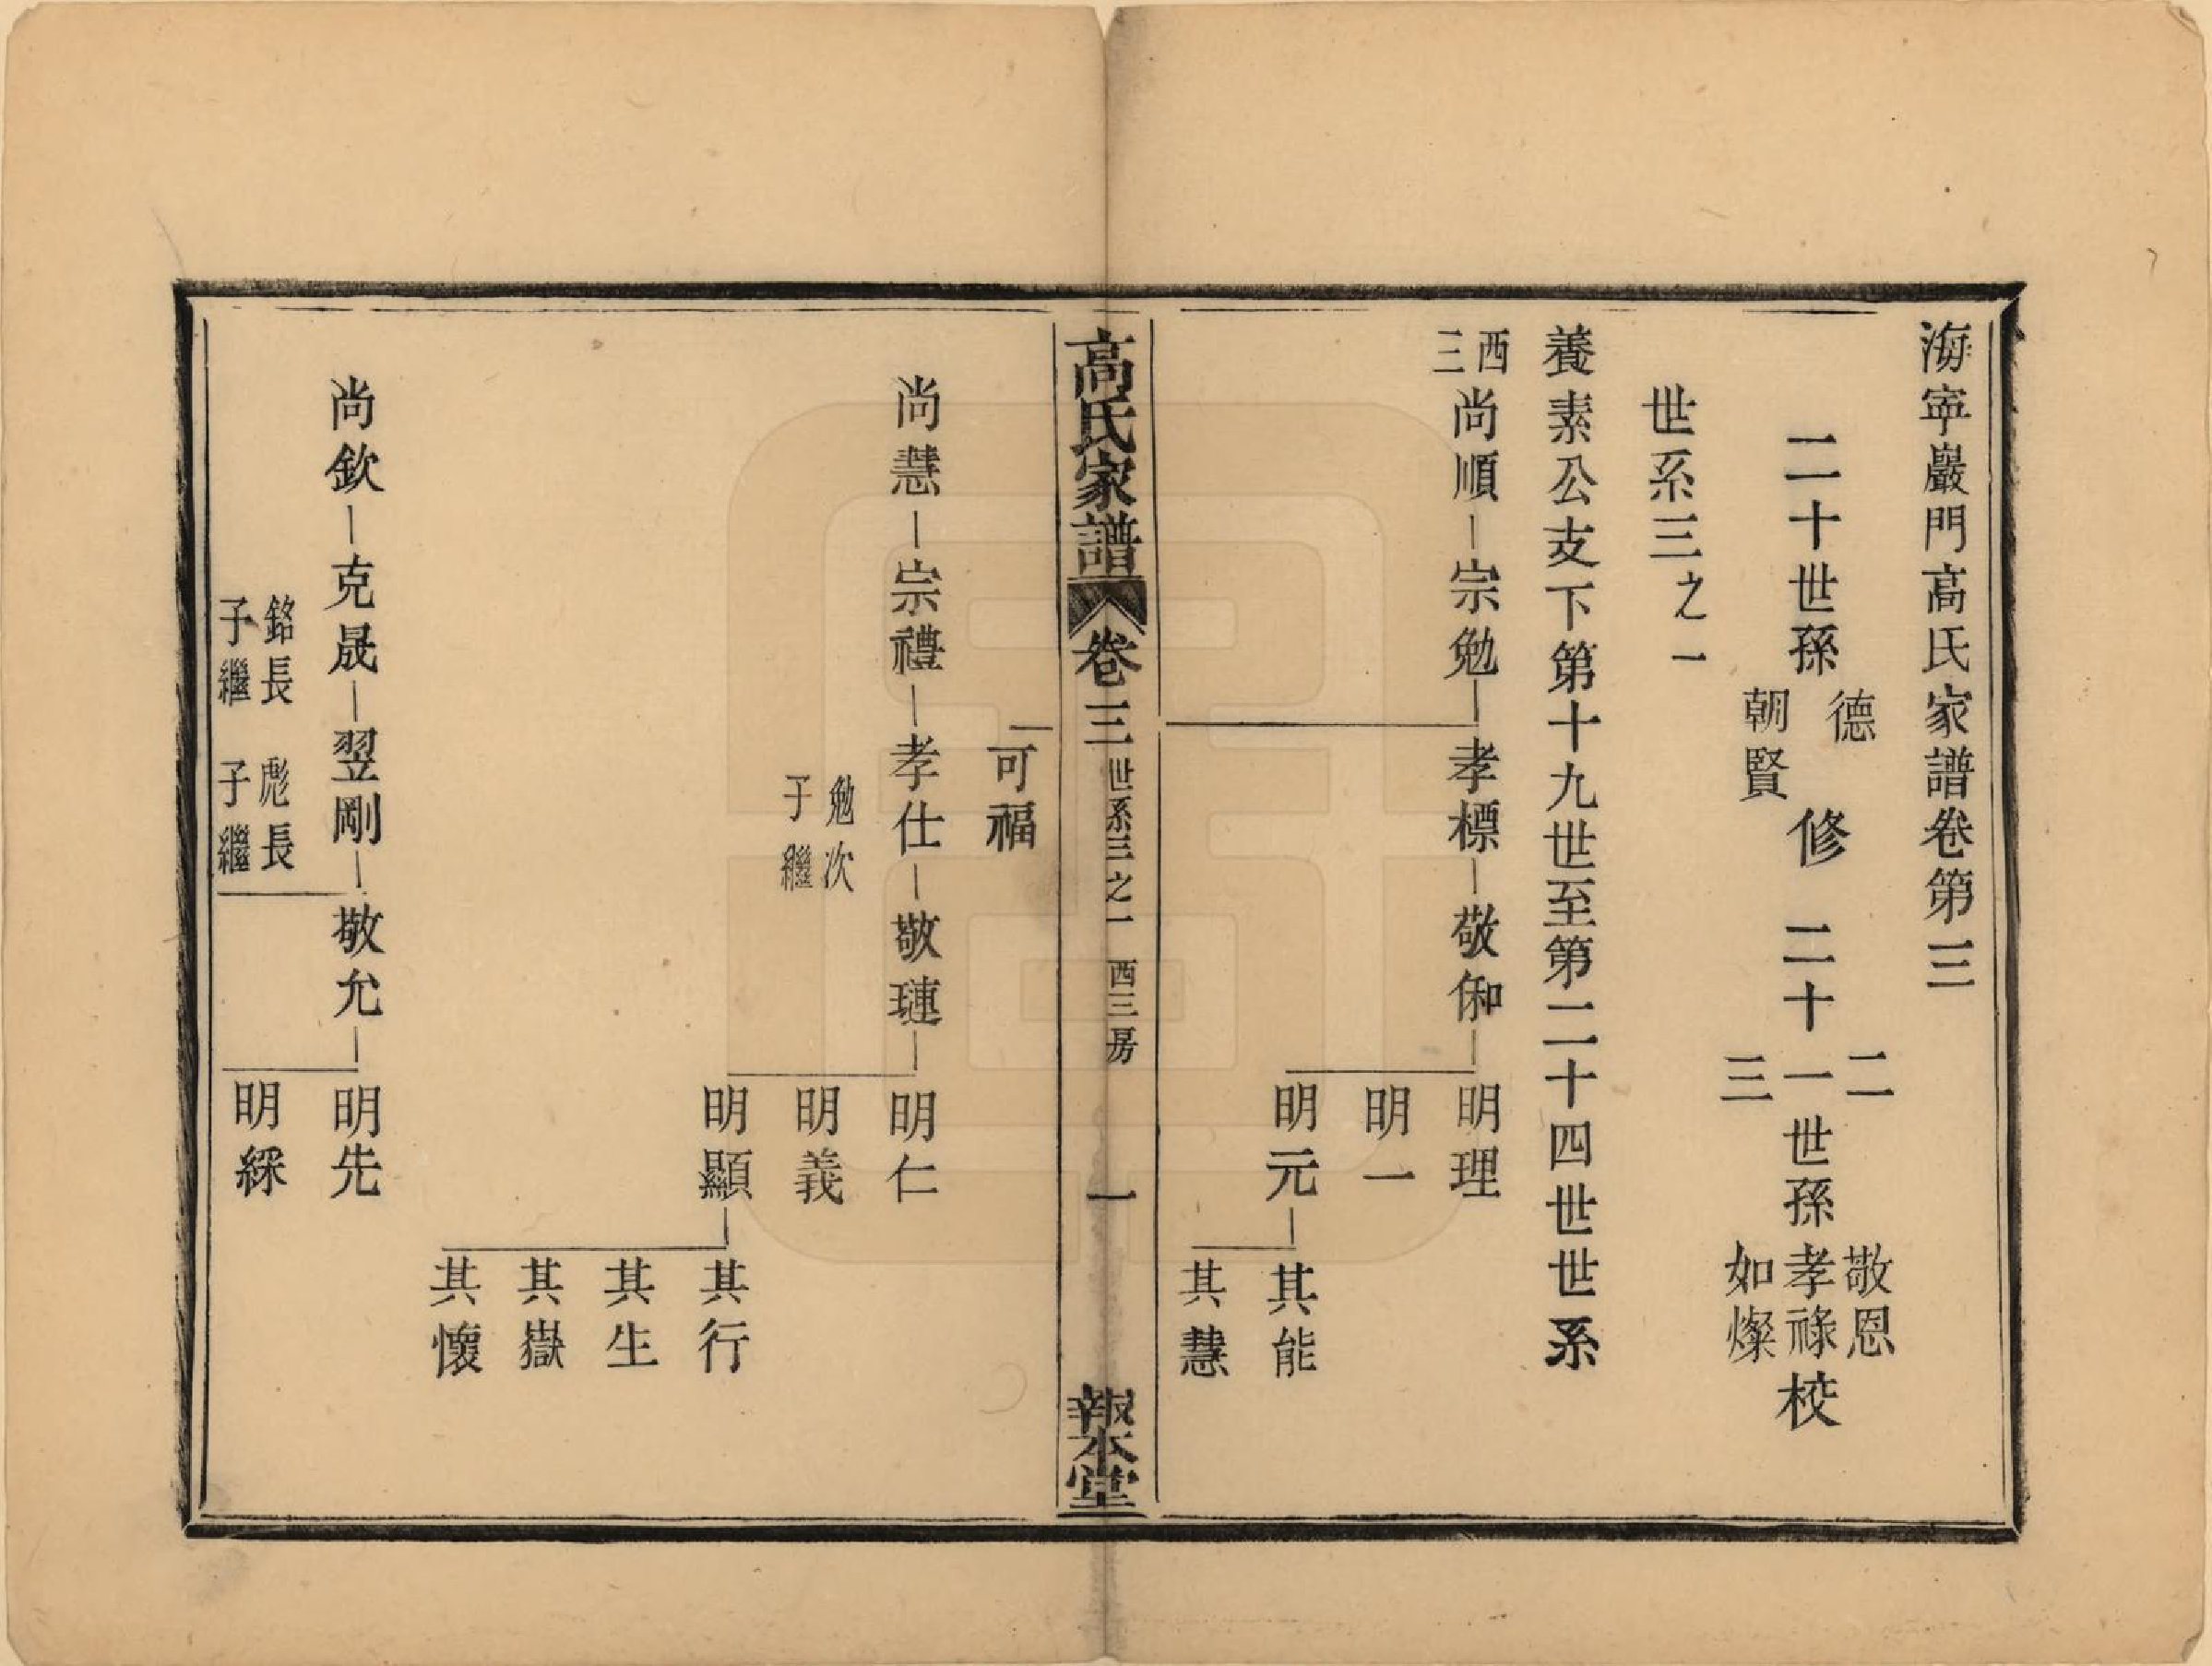 海寧巖門高氏家譜卷第三
二十世孫 德 朝賢 修 二十 二 一 三 世孫 敬恩 孝祿 如燦 校
世系三之一
養素公支下第十九世至第二十四世世系
西三 尚順 宗勉 孝標 敬俰 明理
明一
明元 其能
其慧
高氏家譜 卷三 世系三之一 西三房 一 報本堂
可福
尚慧 宗禮 孝仕 敬璉 明仁
勉次子繼 明義
明顯 其行
其生
其嶽
其懷
尚欽 克晟 翌剛 敬允 明先
銘長子繼 彪長子繼 明綵